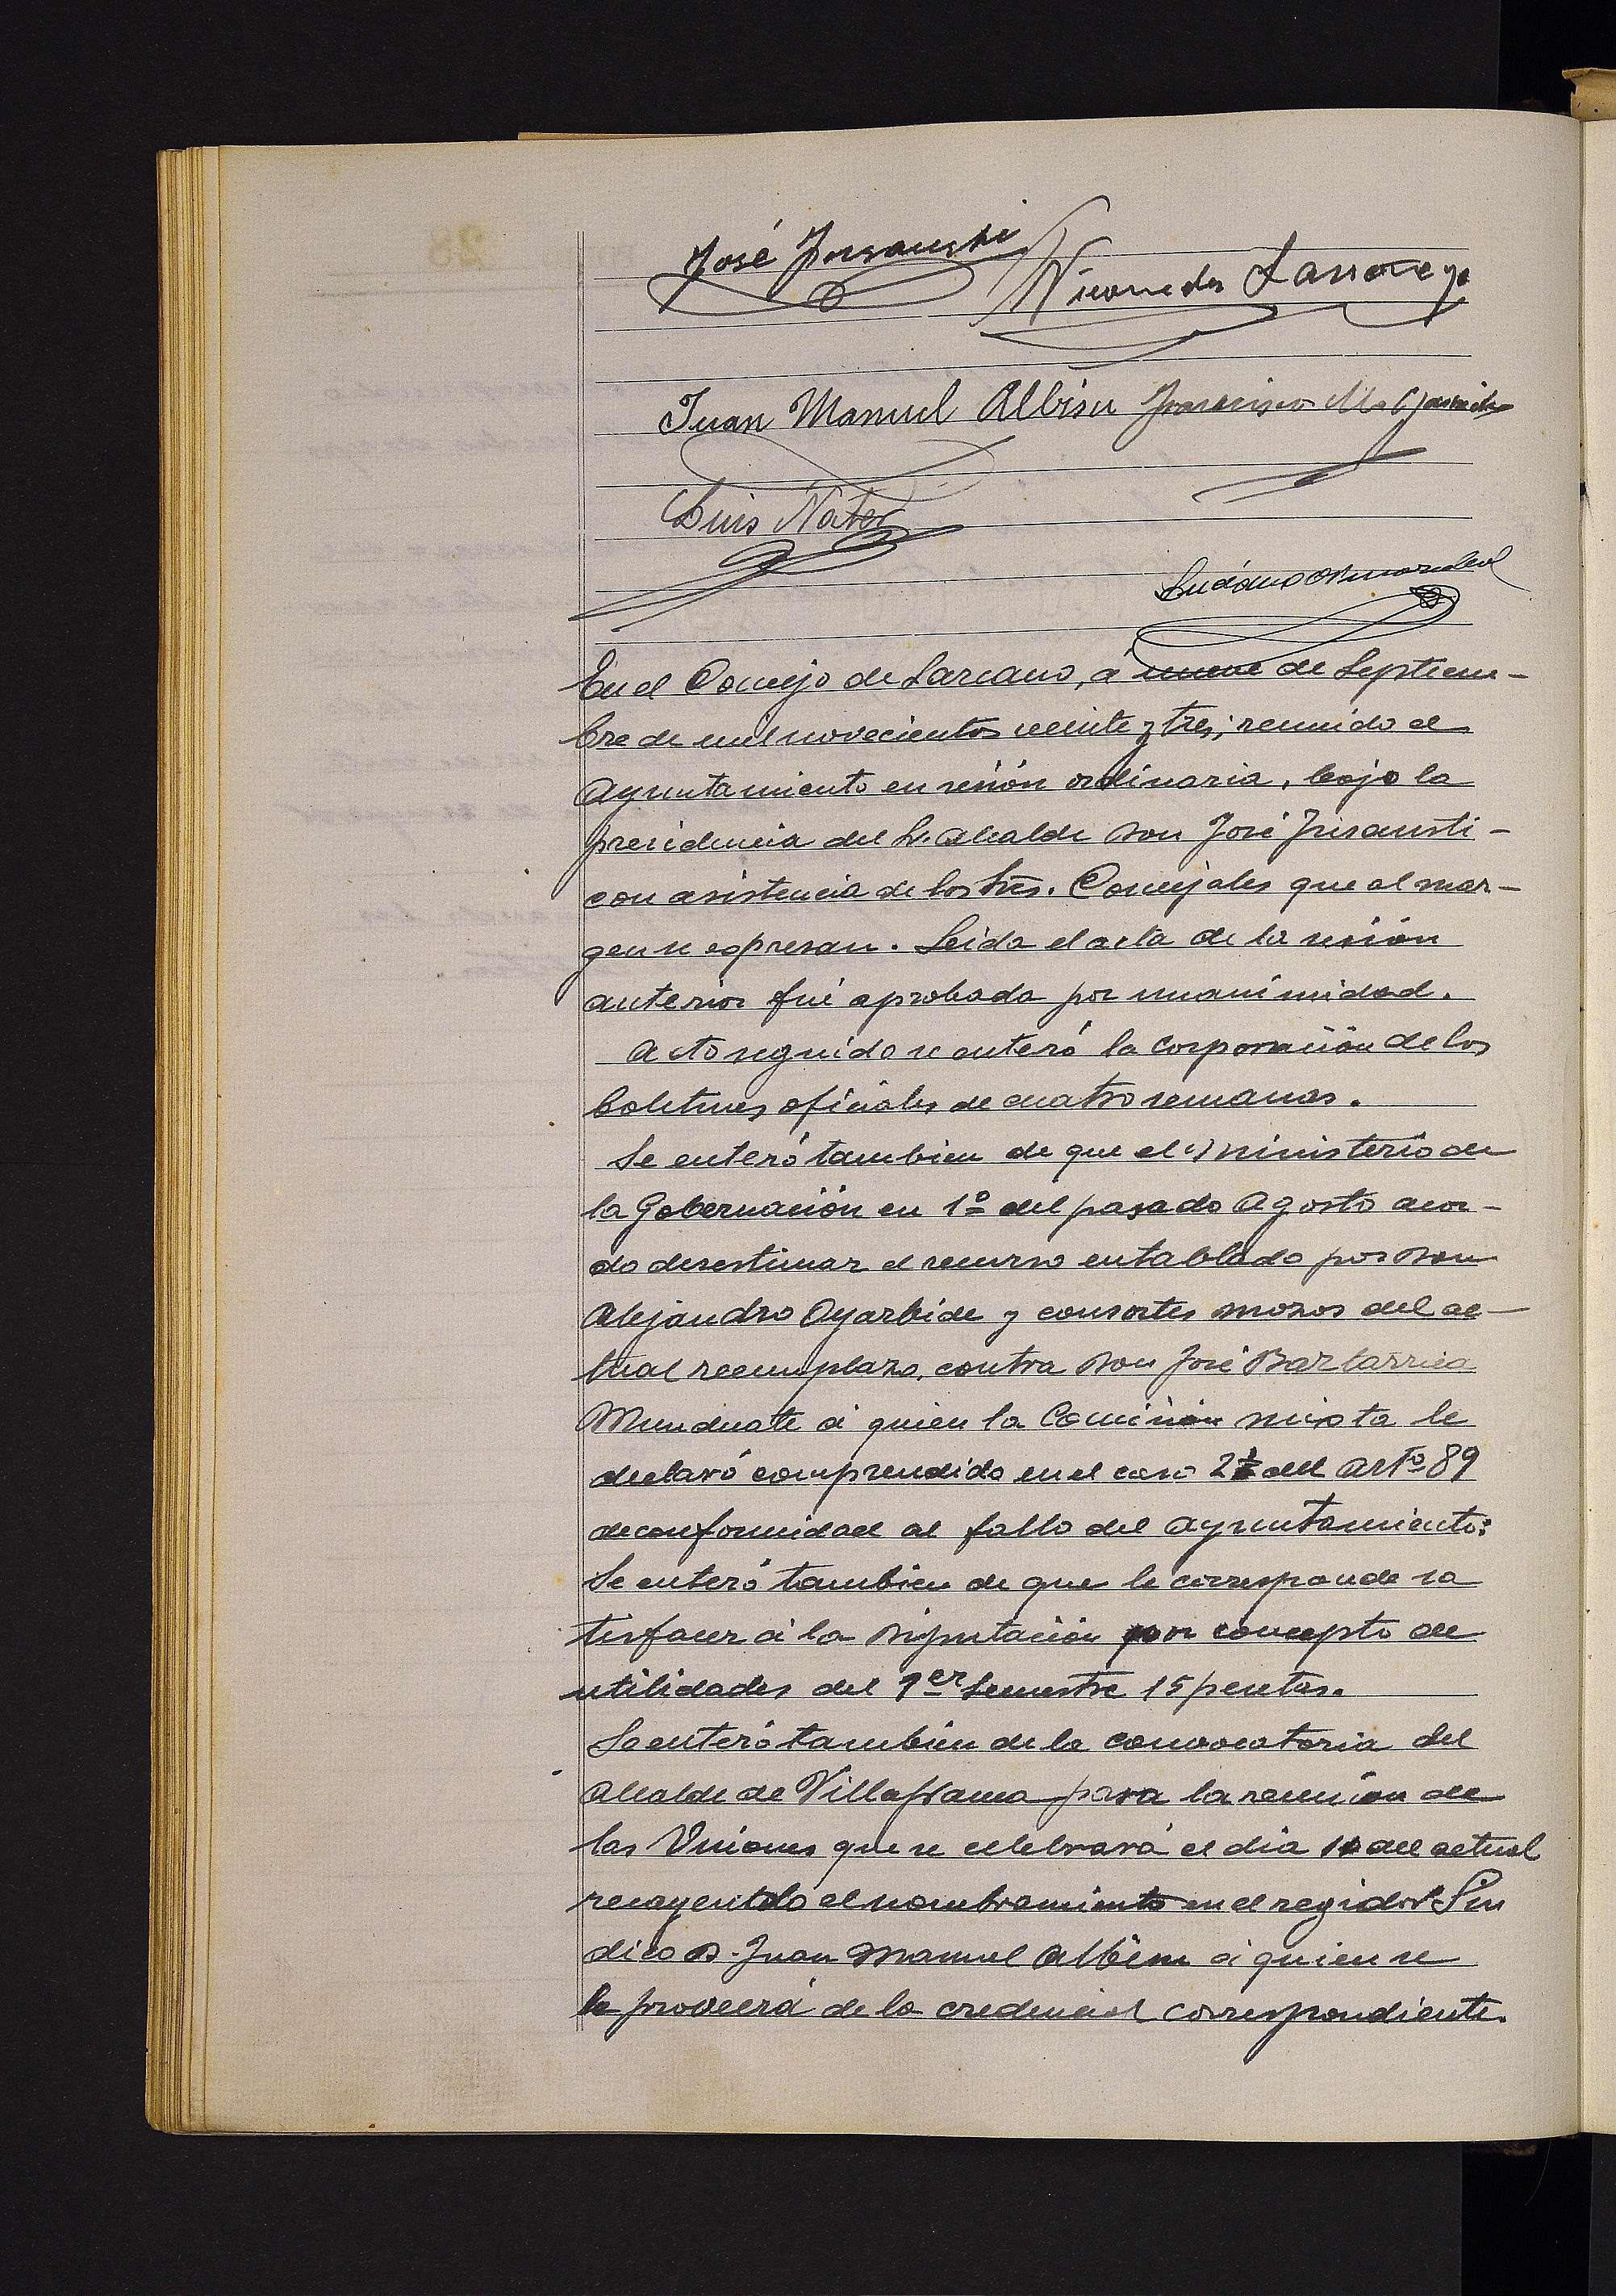 José Insausti
Nicomedes Larrañaga
Juan Manuel Albisu Francisco M. Garmendia
Luis Nater
En el Concejo de Lazcano, á nueve de Septiem-
bre de mil novecientos veinte y tres; reunido el
Ayuntamiento en sesión ordinaria, bajo la
presidencia del Sr. Alcalde Don José Insausti-
con asistencia de los Sres. Concejales que al mar-
gen se espresan. Leida el acta de la sesión
anterior fué aprobada por unanimidad.
Acto seguido se enteró la Corporación de los
boletines oficiales de cuatro semanas.
Se enteró tambien de que el Ministerio de
la Gobernación en 1º del pasado Agosto acor-
do desestimar el recurso entablado por Don
Alejandro Oyarbide y consortes mozos del ac-
tual reemplazo, contra Don José Barbarrica
Munduate á quien la Comisión mixta le
declaró comprendido en el caso 2 del artº 89
de conformidad al fallo del Ayuntamiento:
Se enteró tambien de que le corresponde sa
tisfacer á la Diputación por concepto de
utilidades del 1er Semestre 15 pesetas.
Se enteró tambien de la convocatoria del
Alcalde de Villafranca para la reunion de
las Uniones que se celebrará el dia 10 del actual
recayendo el nombramiento en el regidor Sin
dico D. Juan Manuel Albisu á quien se
le proveerá de la credencial correspondiente.